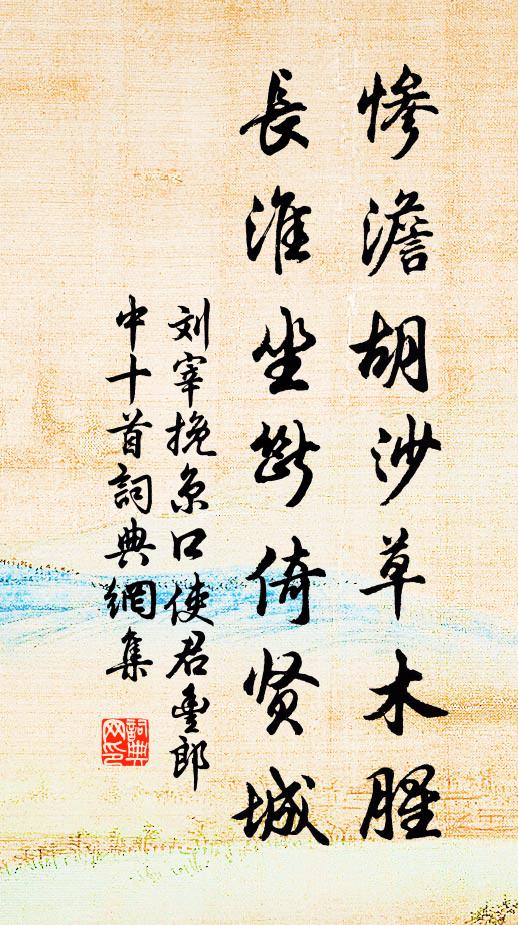 惨澹胡沙草木腥
長淮坐斷倚贤城
刘宰挽京口使君豊郎
中十首詞典網集
詞典
网印